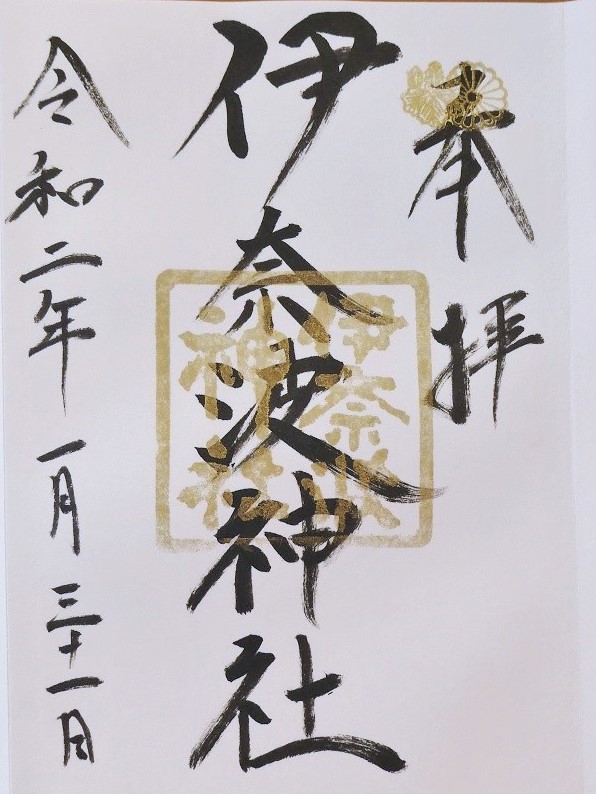 奉拝
伊奈波神社
伊奈波
神社
令和二年 一月 三十一日